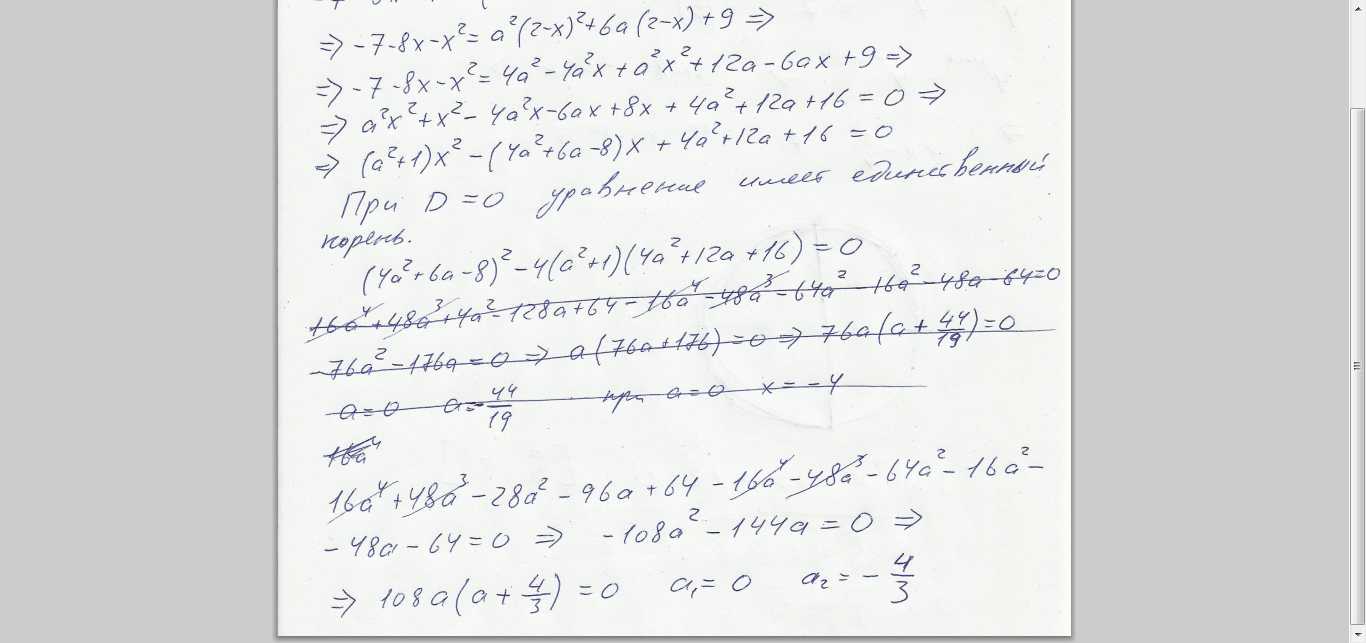 => -7-8x-x²= a²(2-x)²+6a(2-x)+9 =>
=> -7-8x-x²= 4a²-4a²x+a²x²+12a-6ax+9 =>
=> a²x²+x²-4a²x-6ax+8x+4a²+12a+16=0 =>
=> (a²+1)x²-(4a²+6a-8)x+4a²+12a+16=0
При D=0 уравнение имеет единственный
корень.
(4a²+6a-8)²-4(a²+1)(4a²+12a+16)=0
16a⁴+48a³+4a²-128a+64-16a⁴-48a³-64a²-16a²-48a-64=0
-76a²-176a=0 => a(76a+176)=0 => 76a(a+44/19)=0
a=0 a=-44/19 при a=0 x=-4
16a⁴
16a⁴+48a³-28a²-96a+64-16a⁴-48a³-64a²-16a²-
-48a-64=0 => -108a²-144a=0 =>
=> 108a(a+4/3)=0 a₁=0 a₂=-4/3